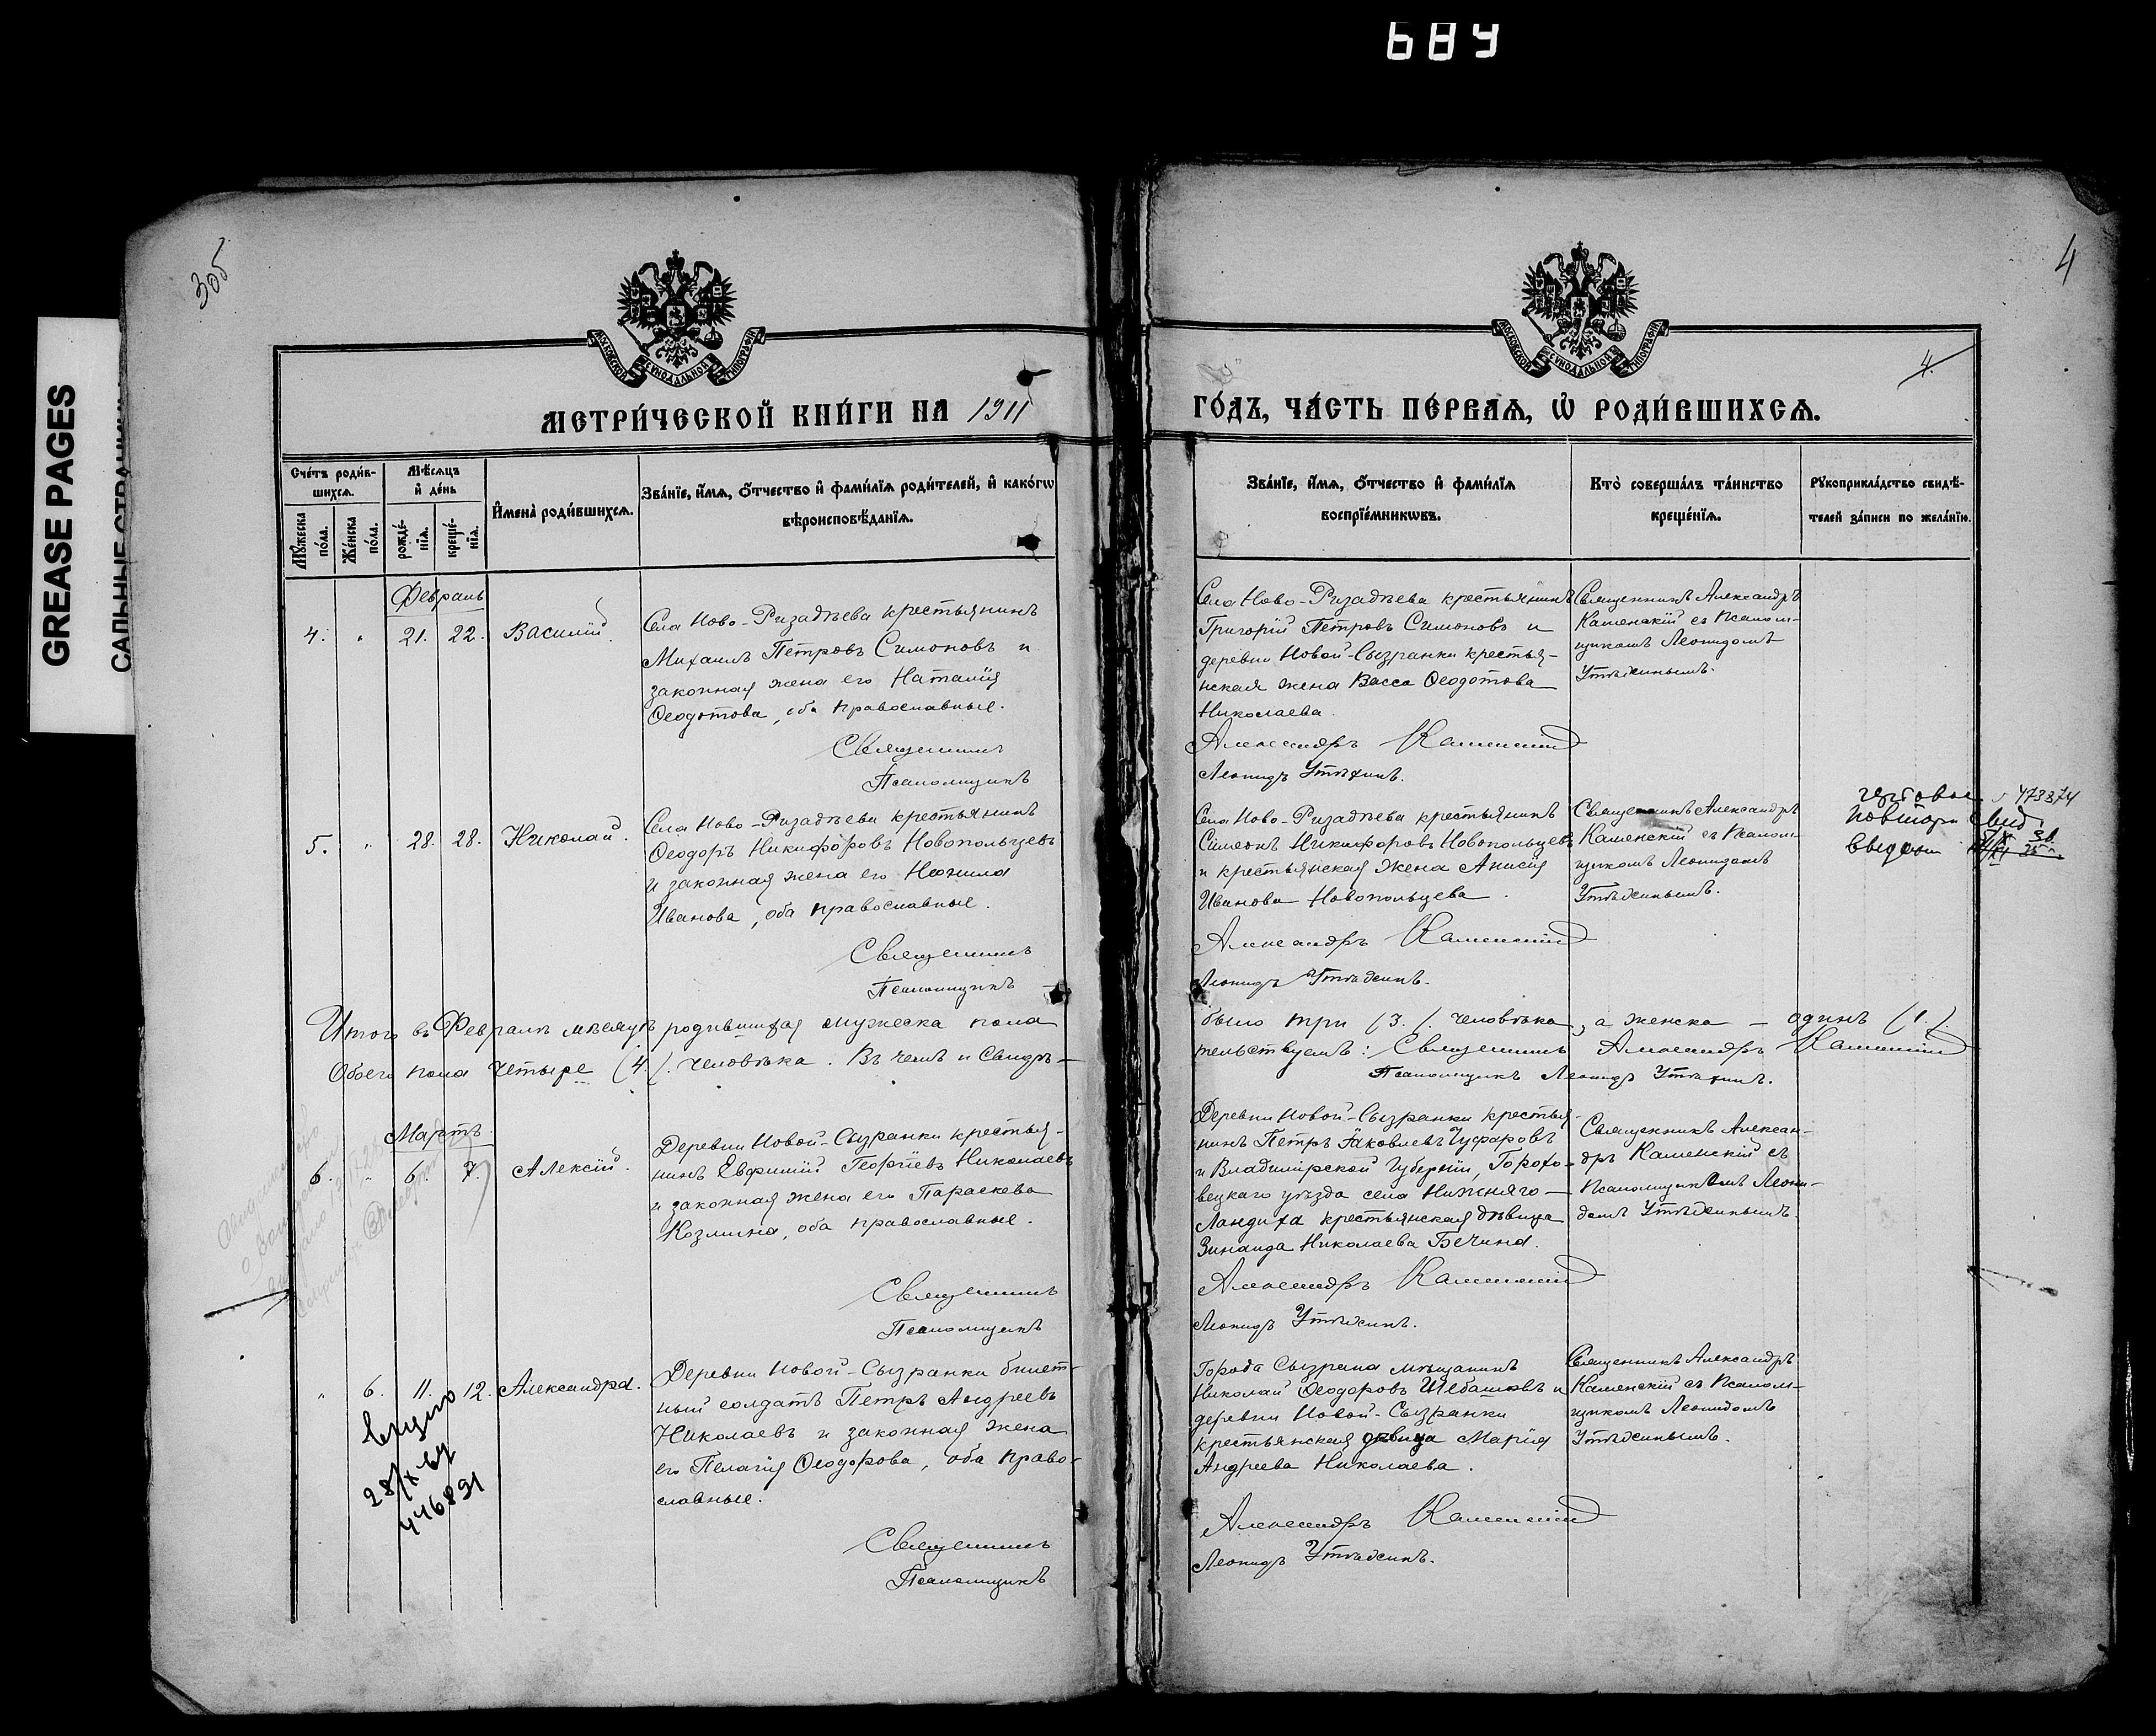 689
GREASE PAGES
305
4
4.
МОСКОВСКОЙ СѴНОДАЛЬНОЙ ТИПОГРАФІИ
МОСКОВСКОЙ СѴНОДАЛЬНОЙ ТИПОГРАФІИ
МЕТРИ́ЧЕСКОЙ КНИ́ГИ НА 1911 ГО́ДЪ, ЧА́СТЬ ПЕ́РВАѦ, Ѡ҆ РОДИ́ВШИХСѦ.
Сче́тъ роди́в-
шихсѧ.
Мѣ́сѧцъ
и҆ де́нь
Мꙋ́жеска
по́ла.
Же́нска
по́ла.
рожде́-
нїѧ.
креще́-
нїѧ.
И҆мена̀ роди́вшихсѧ.
Зва́нїе, и҆́мѧ, ѻ҆́тчество и҆ фами́лїѧ роди́телей, и҆ како́гѡ
вѣроисповѣ́данїѧ.
Зва́нїе, и҆́мѧ, ѻ҆́тчество и҆ фами́лїѧ
воспрїе́мникѡвъ.
Кто̀ соверша́лъ та́инство
креще́нїѧ.
Рꙋкоприкла́дство свидѣ́-
телей за́писи по жела́нїю.
Февраль
4. " 21. 22. Василій.
Села Ново-Ризадѣева крестьянинъ
Михаилъ Петровъ Симоновъ и
законная жена его Наталія
Ѳеодотова, оба православные.
Священникъ
Псаломщикъ
Села Ново-Ризадѣева крестьянинъ
Григорій Петровъ Симоновъ и
деревни Новой-Сызранки крестья-
нская жена Васса Ѳеодотова
Николаева.
Александръ Каменскій
Леонидъ Утѣхинъ.
Священникъ Александръ
Каменскій съ псалом-
щикомъ Леонидомъ
Утѣхинымъ.
5. " 28. 28. Николай.
Села Ново-Ризадѣева крестьянинъ
Ѳеодоръ Никифоровъ Новопольцевъ
и законная жена его Неонила
Иванова, оба православные.
Священникъ
Псаломщикъ
Села Ново-Ризадѣева крестьянинъ
Симеонъ Никифоровъ Новопольцевъ
и крестьянская жена Анисія
Иванова Новопольцева.
Александръ Каменскій
Леонидъ Утѣхинъ.
Священникъ Александръ
Каменскій съ псалом-
щикомъ Леонидомъ
Утѣхинымъ.
473374
повторн свид
Итого въ Февралѣ мѣсяцѣ родившихся мужеска пола было три (3). человѣка, а женска — одинъ (1).
Обоего пола четыре (4). человѣка. Въ чемъ и свидѣ-тельствуемъ: Священникъ Александръ Каменскій
Псаломщикъ Леонидъ Утѣхинъ.
Мартъ.
6. " 6. 7. Алексій.
Деревни Новой-Сызранки крестья-
нинъ Евфимій Георгіевъ Николаевъ
и законная жена его Параскева
Козмина, оба православные.
Священникъ
Псаломщикъ
Деревни Новой-Сызранки крестья-
нинъ Петръ Яковлевъ Чуфаровъ
и Владимірской губерніи, Горохо-
вецкаго уѣзда села Нижняго-
Ландиха крестьянская дѣвица
Зинаида Николаева Бечина.
Александръ Каменскій
Леонидъ Утѣхинъ.
Священникъ Алексан-
дръ Каменскій съ
псаломщикомъ Леони-
домъ Утѣхинымъ.
" 6. 11. 12. Александра.
28/X-67
446891
Деревни Новой-Сызранки билет-
ный солдатъ Петръ Андреевъ
Николаевъ и законная жена
его Пелагія Ѳеодорова, оба право-
славные.
Священникъ
Псаломщикъ
Города Сызрана мѣщанинъ
Николай Ѳеодоровъ Шебашовъ и
деревни Новой-Сызранки
крестьянская дѣвица Марія
Андреева Николаева.
Александръ Каменскій
Леонидъ Утѣхинъ.
Священникъ Александръ
Каменскій съ псалом-
щикомъ Леонидомъ
Утѣхинымъ.